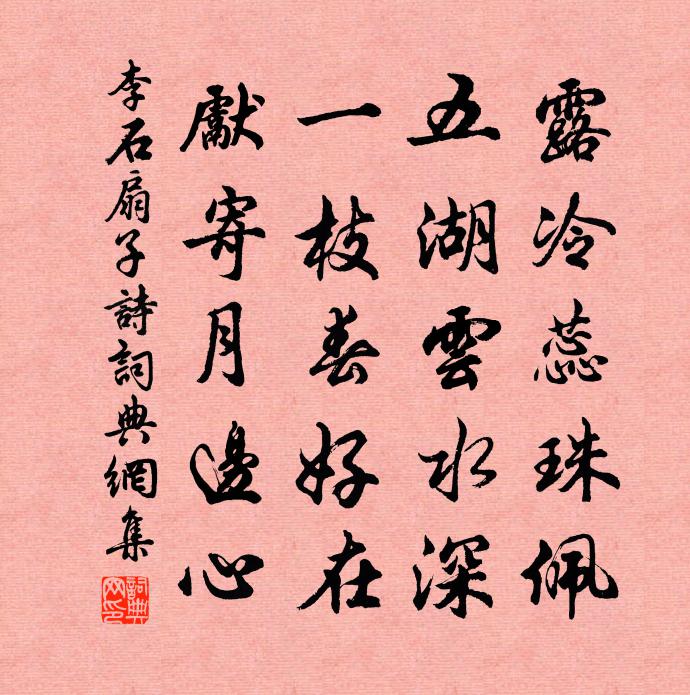 露冷蕊珠佩
五湖雲水深
一枝春好在
獻寄月邊心
李石扇子詩詞典網集
詞典網印